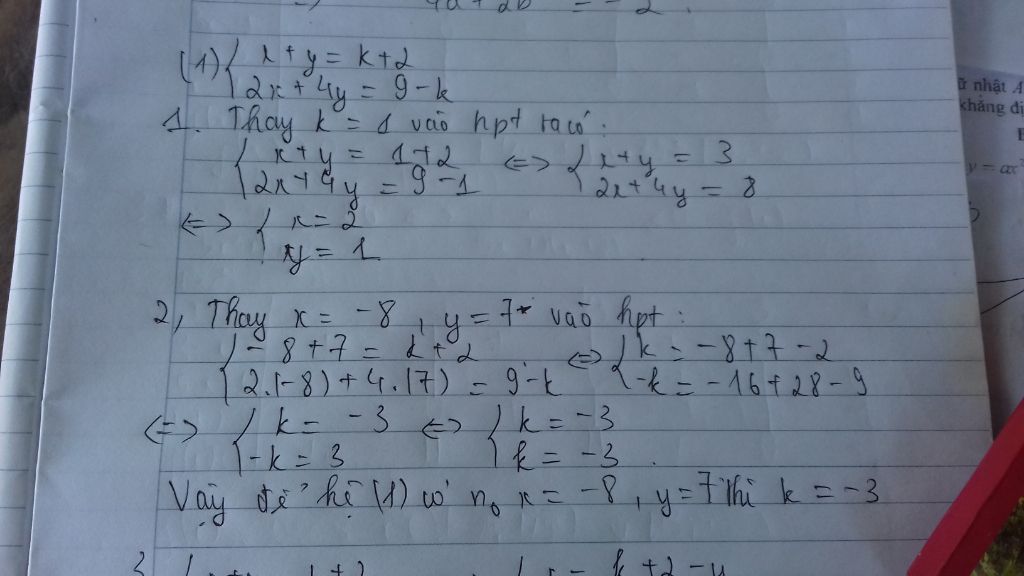 4a + 2b = -2.
(1) { x + y = k + 2
2x + 4y = 9 - k
1. Thay k = 1 vào hpt ta có:
{ x + y = 1 + 2 <=> { x + y = 3
2x + 4y = 9 - 1 2x + 4y = 8
<=> { x = 2
y = 1
2, Thay x = -8, y = 7 vào hpt:
{ -8 + 7 = k + 2 <=> { k = -8 + 7 - 2
2.(-8) + 4.(7) = 9 - k -k = -16 + 28 - 9
<=> { k = -3 <=> { k = -3
-k = 3 k = -3.
Vậy để hệ (1) có n0 x = -8, y = 7 thì k = -3
ữ nhật A
khẳng đị
y = ax